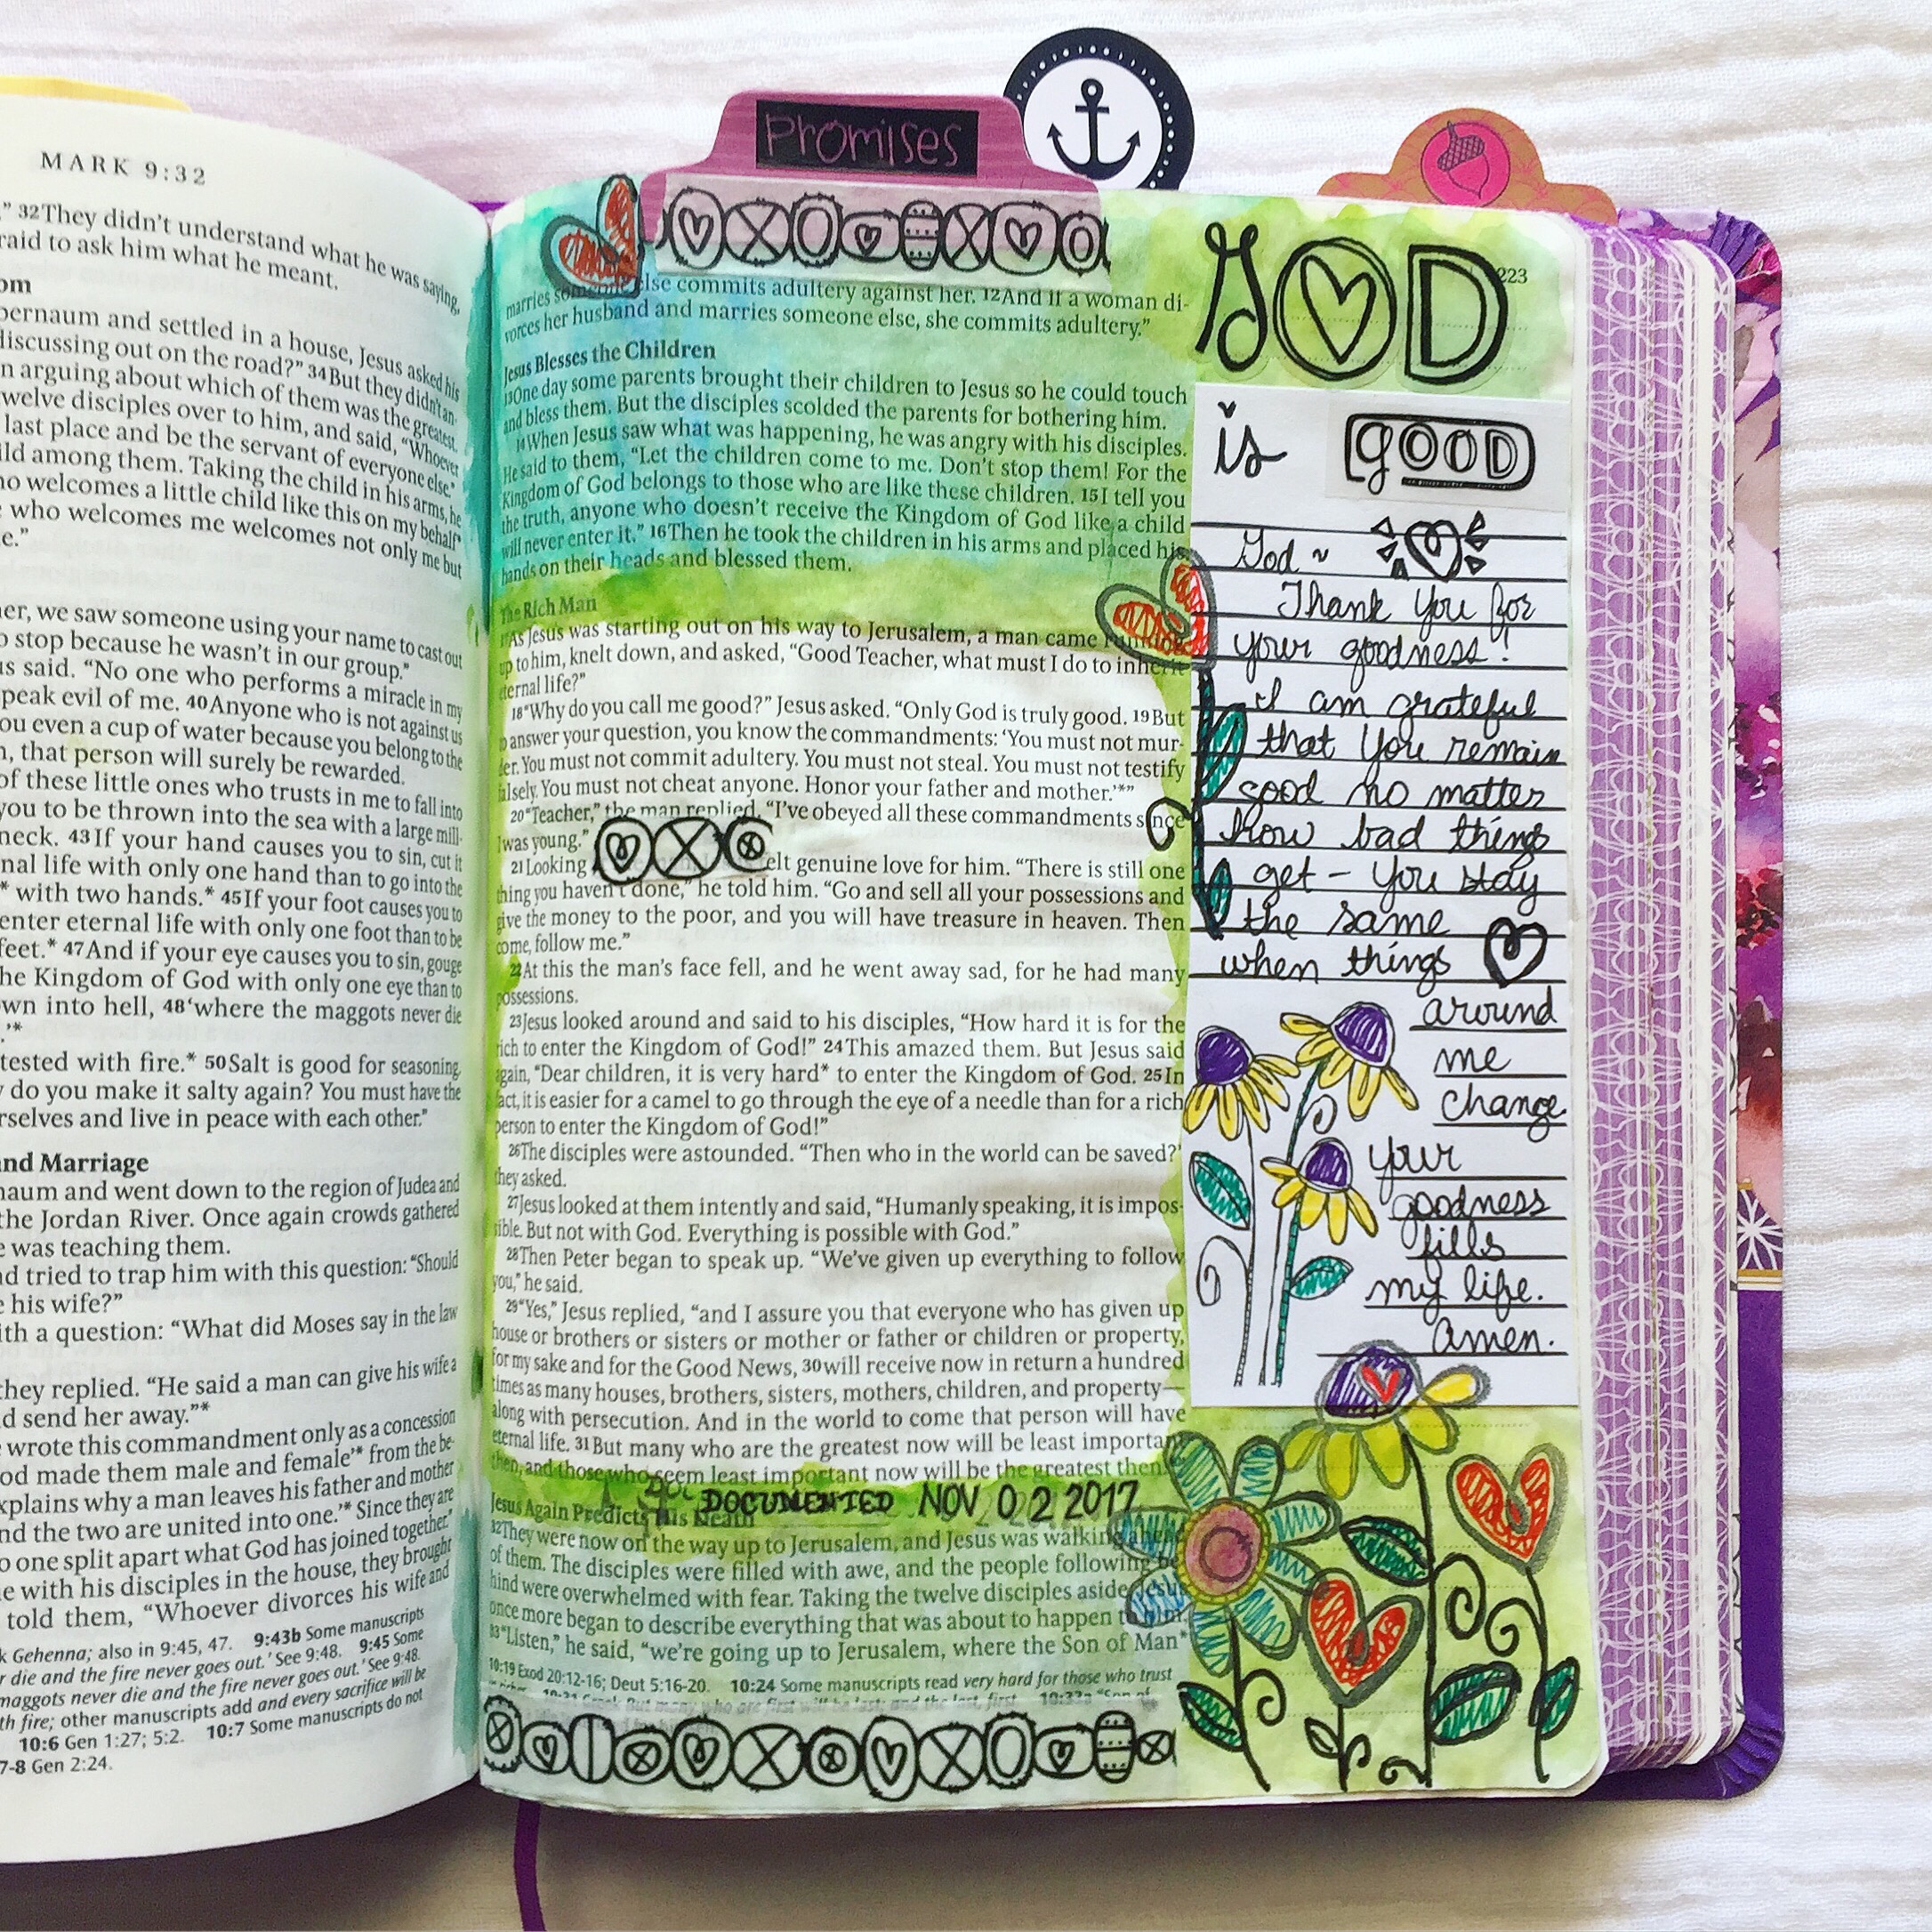 MARK 9:32
” 32They didn’t understand what he was saying,
raid to ask him what he meant.
om
pernaum and settled in a house, Jesus asked his
discussing out on the road?” 34But they didn’t an-
n arguing about which of them was the greatest.
welve disciples over to him, and said, “Whoever
last place and be the servant of everyone else.”
ild among them. Taking the child in his arms, he
ho welcomes a little child like this on my behalf
who welcomes me welcomes not only me but
e.”
her, we saw someone using your name to cast out
o stop because he wasn’t in our group.”
us said. “No one who performs a miracle in my
peak evil of me. 40Anyone who is not against us
ou even a cup of water because you belong to the
h, that person will surely be rewarded.
of these little ones who trusts in me to fall into
you to be thrown into the sea with a large mill-
neck. 43If your hand causes you to sin, cut it
nal life with only one hand than to go into the
* with two hands.* 45If your foot causes you to
enter eternal life with only one foot than to be
feet.* 47And if your eye causes you to sin, gouge
he Kingdom of God with only one eye than to
own into hell, 48‘where the maggots never die
.’*
tested with fire.* 50Salt is good for seasoning.
y do you make it salty again? You must have the
rselves and live in peace with each other.”
nd Marriage
naum and went down to the region of Judea and
the Jordan River. Once again crowds gathered
e was teaching them.
d tried to trap him with this question: “Should
e his wife?”
ith a question: “What did Moses say in the law
they replied. “He said a man can give his wife a
d send her away.”*
wrote this commandment only as a concession
od made them male and female’* from the be-
xplains why a man leaves his father and mother
nd the two are united into one.’* Since they are
o one split apart what God has joined together.”
e with his disciples in the house, they brought
told them, “Whoever divorces his wife and
k Gehenna; also in 9:45, 47. 9:43b Some manuscripts
r die and the fire never goes out.’ See 9:48. 9:45 Some
maggots never die and the fire never goes out.’ See 9:48.
th fire; other manuscripts add and every sacrifice will be
10:6 Gen 1:27; 5:2. 10:7 Some manuscripts do not
7-8 Gen 2:24.
Promises
223
marries someone else commits adultery against her. 12And if a woman di-
vorces her husband and marries someone else, she commits adultery.”
Jesus Blesses the Children
13One day some parents brought their children to Jesus so he could touch
and bless them. But the disciples scolded the parents for bothering him.
14When Jesus saw what was happening, he was angry with his disciples.
He said to them, “Let the children come to me. Don’t stop them! For the
Kingdom of God belongs to those who are like these children. 15I tell you
the truth, anyone who doesn’t receive the Kingdom of God like a child
will never enter it.” 16Then he took the children in his arms and placed his
hands on their heads and blessed them.
The Rich Man
17As Jesus was starting out on his way to Jerusalem, a man came running
up to him, knelt down, and asked, “Good Teacher, what must I do to inherit
eternal life?”
18“Why do you call me good?” Jesus asked. “Only God is truly good. 19But
to answer your question, you know the commandments: ‘You must not mur-
der. You must not commit adultery. You must not steal. You must not testify
falsely. You must not cheat anyone. Honor your father and mother.’*”
20“Teacher,” the man replied, “I’ve obeyed all these commandments since
I was young.”
21Looking elt genuine love for him. “There is still one
thing you haven’t done,” he told him. “Go and sell all your possessions and
give the money to the poor, and you will have treasure in heaven. Then
come, follow me.”
22At this the man’s face fell, and he went away sad, for he had many
possessions.
23Jesus looked around and said to his disciples, “How hard it is for the
rich to enter the Kingdom of God!” 24This amazed them. But Jesus said
again, “Dear children, it is very hard* to enter the Kingdom of God. 25In
fact, it is easier for a camel to go through the eye of a needle than for a rich
person to enter the Kingdom of God!”
26The disciples were astounded. “Then who in the world can be saved?”
they asked.
27Jesus looked at them intently and said, “Humanly speaking, it is impos-
sible. But not with God. Everything is possible with God.”
28Then Peter began to speak up. “We’ve given up everything to follow
you,” he said.
29“Yes,” Jesus replied, “and I assure you that everyone who has given up
house or brothers or sisters or mother or father or children or property,
for my sake and for the Good News, 30will receive now in return a hundred
times as many houses, brothers, sisters, mothers, children, and property—
along with persecution. And in the world to come that person will have
eternal life. 31But many who are the greatest now will be least important
then, and those who seem least important now will be the greatest then.”
DOCUMENTED NOV 02 2017
Jesus Again Predicts His Death
32They were now on the way up to Jerusalem, and Jesus was walking ahead
of them. The disciples were filled with awe, and the people following be-
hind were overwhelmed with fear. Taking the twelve disciples aside, Jesus
once more began to describe everything that was about to happen to him.
33“Listen,” he said, “we’re going up to Jerusalem, where the Son of Man*
10:19 Exod 20:12-16; Deut 5:16-20. 10:24 Some manuscripts read very hard for those who trust
10:31 Greek But many who are first will be last; and the last, first. 10:33a “Son of
GOD
is good
God ~
Thank You for
your goodness!
I am grateful
that You remain
good no matter
how bad things
get - You stay
the same
when things
around
me
change.
your
goodness
fills
my life.
amen.